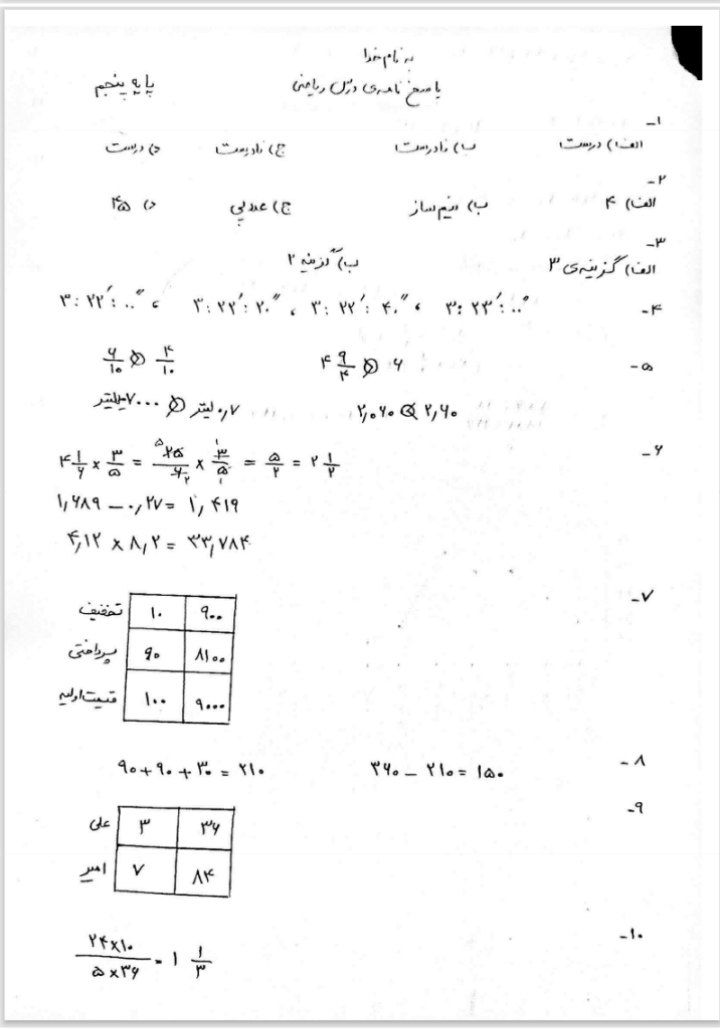 به نام خدا
پاسخ نامه‌ی درس ریاضی پایه پنجم
۱-
الف) درست ب) نادرست ج) نادرست د) درست
۲-
الف) ۴ ب) نیم ساز ج) د) ۴۵
۳-
الف) گزینه‌ی ۳ ب) گزینه ۲
۴- ۳:۲۳′:۰۰″ ، ۳:۲۲′:۴۰″ ، ۳:۲۲′:۲۰″ ، ۳:۲۲′:۰۰″
۵- ۶ ۴ ۹/۴ ۴/۱۰ ۶/۱۰
۲٫۶۰ ۲٫۰۶۰ ۰٫۷ لیتر ۷۰۰۰ میلیتر
۶- ۴ ۱/۶ × ۳/۵ = ۲۵/۶ × ۳/۵ = ۵/۲ = ۲ ۱/۲
۱٫۶۸۹ - ۰٫۲۷ = ۱٫۴۱۹
۴٫۱۲ × ۸٫۲ = ۳۳٫۷۸۴
۷-
تخفیف ۱۰ ۹۰۰
پرداختی ۹۰ ۸۱۰۰
قیمت اولیه ۱۰۰ ۹۰۰۰
۸- ۳۶۰ - ۲۱۰ = ۱۵۰ ۹۰ + ۹۰ + ۳۰ = ۲۱۰
۹-
علی ۳ ۳۶
امیر ۷ ۸۴
۱۰-
۲۴×۱۰/۵×۳۶ = ۱ ۱/۳